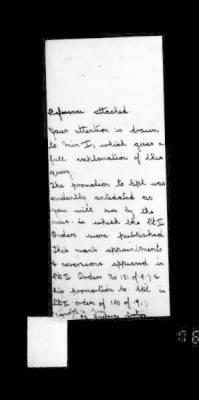 Reference attached
Your attention is drawn
to Min I, which gives a
full explanation of this
query.
The promotion to Cpl was
evidently antedated as
you will see by the
in which the Pt II
Orders were published
This man's appointments
& reversions appeared in
Pt II Orders No 131 of 9.7 &
his promotion to Cpl in
Pt II order of 120 of 19.7